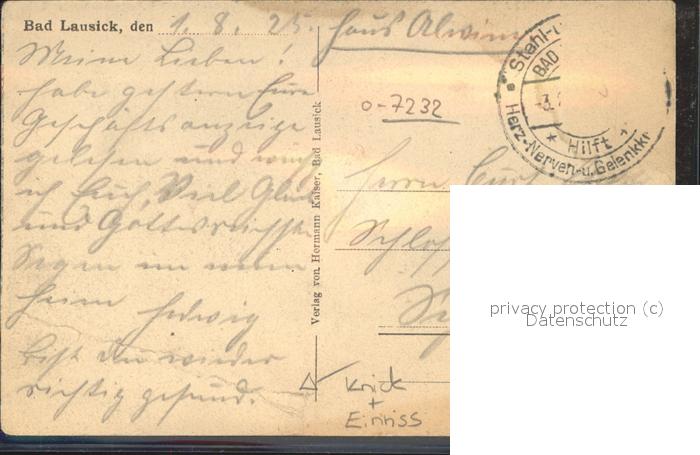 Bad Lausick, den 1. 8. 25.
Haus Alwine
Meine Lieben!
habe gestern Eure
Geschäftsanzeige
gelesen und wünsche
ich Euch, Viel Glück
und Gottes reichsten
Segen im neuen
Heim Hedwig
bist du wieder
richtig gesund.
Verlag von Hermann Kaiser, Bad Lausick
0-7232
Stahl-
BAD
-3.
* Hilft *
Herz-Nerven-u. Gelenkkr
Herrn Curt
Schloß
privacy protection (c)
Datenschutz
Knick
+
Einriss